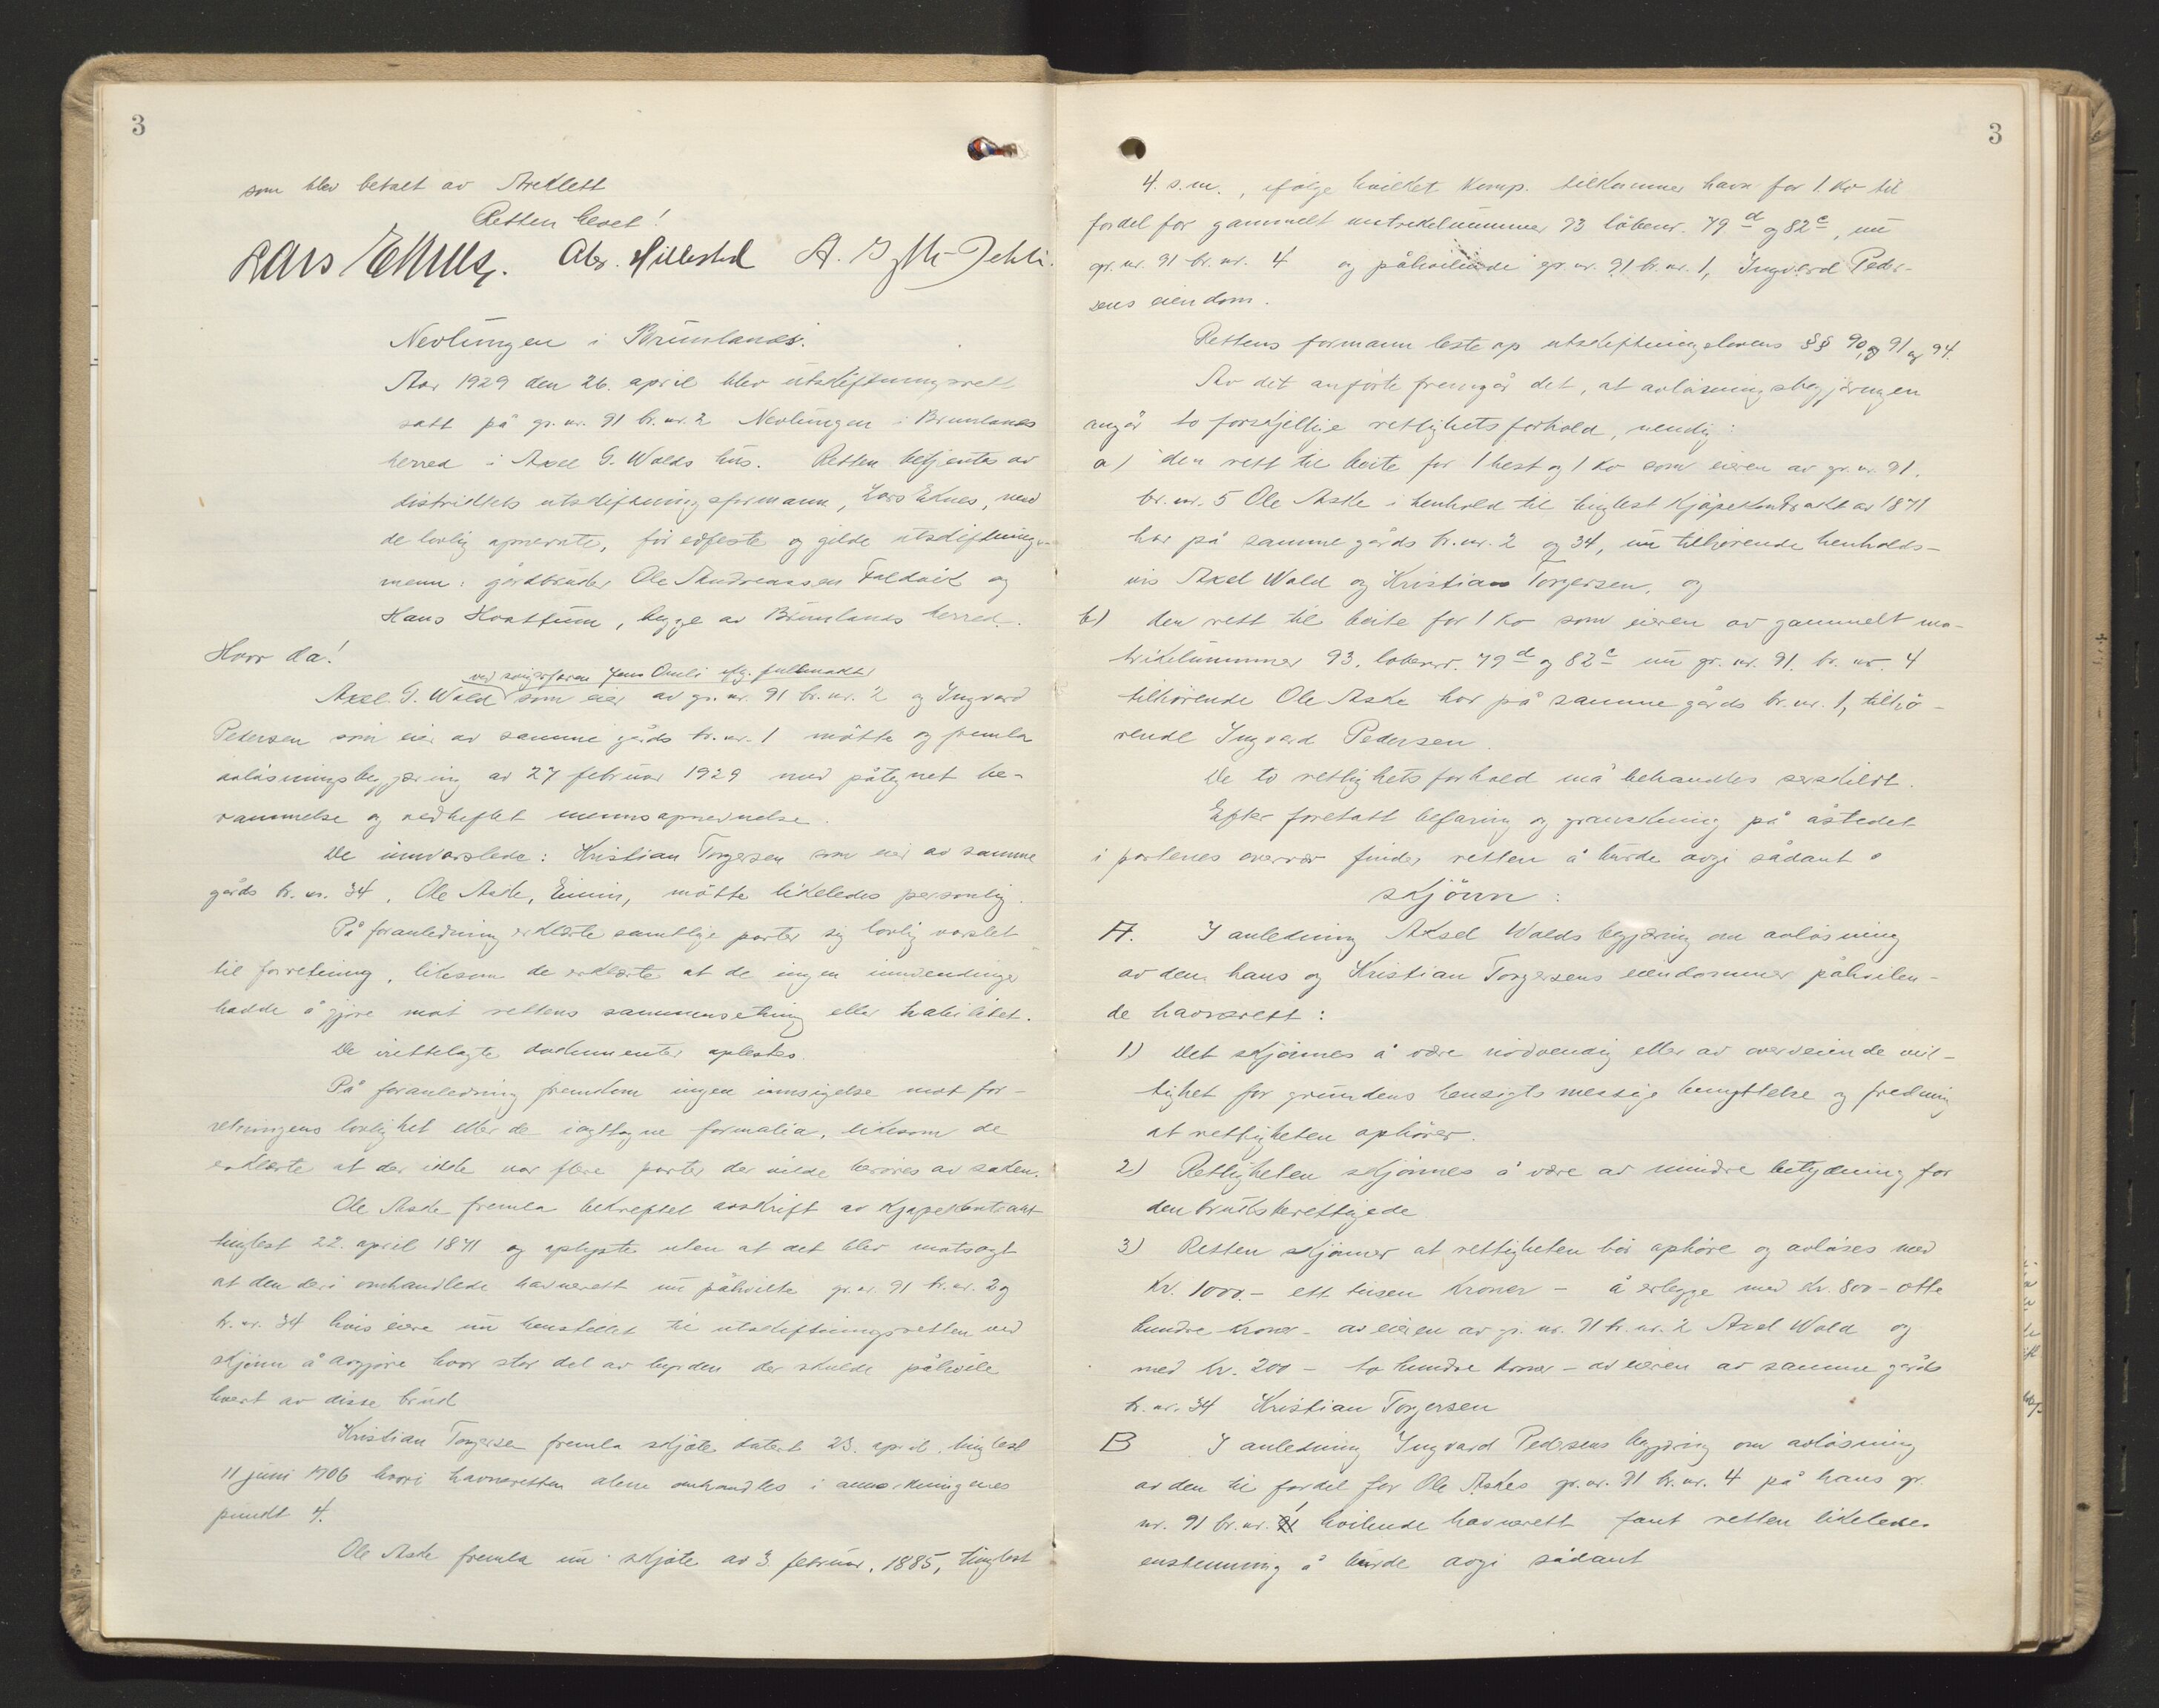 3
som blev betalt av Areklett
Retten hevet!
Lars Eknes. Abr. Hillestad A.
Nevlungen i Brunlanes.
Aar 1929 den 26. april blev utskiftningsrett
satt på gr. nr. 91 br. nr. 2 Nevlungen i Brunlanes
herred i Axel G. Walds hus. Retten betjentes av
distriktets utskiftningsformann, Lars Eknes, med
de lovlig opnevnte, før edfeste og gilde utskiftnings-
menn: gårdbruker Ole Andreassen Foldvik og
Hans Hvattum, begge av Brunlanes herred.
Hvor da!
ved svigerfaren Jens Omli iflg. fullmakt
Axel. G. Wald som eier av gr. nr. 91 br. nr. 2 og Ingvard
Pedersen som eier av samme gårds br. nr. 1 møtte og fremla
avløsningsbegjæring av 27 februar 1929 med påtegnet be-
rammelse og vedheftet mennsopnevnelse.
De innvarslede: Kristian Torgersen som eier av samme
gårds br. nr. 34, Ole Aske, møtte likeledes personlig.
På foranledning erklærte samtlige parter sig lovlig varslet
til forretning, likesom de erklærte at de ingen innvendinger
hadde å gjøre mot rettens sammensetning eller habilitet.
De irettelagte dokumenter oplestes.
På foranledning fremkom ingen innsigelse mot for-
retningens lovlighet eller de iagttagne formalia, likesom de
erklærte at der ikke var flere parter der vilde berøres av saken.
Ole Aske fremla bekreftet avskrift av kjøpekontrakt
tinglest 22. april 1871 og oplyste uten at det blev motsagt
at den deri omhandlede havnerett nu påhvilte gr. nr. 91 br. nr. 2 og
br. nr. 34 hvis eiere nu henstillet til utskiftningsretten ved
skjønn å avgjøre hvor stor del av byrden der skulde påhvile
hvert av disse bruk
Kristian Torgersen fremla skjøte datert 23. april, tinglest
11 juni 1906 hvori havneretten alene omhandles i anmerkningenes
punkt 4.
Ole Aske fremla nu skjøte av 3 februar, 1885, tinglest
3
4. s.m., ifølge hvilket komp. tilkommer havn for 1 ko til
fordel for gammelt matrikelnummer 93 løbenr. 79 d og 82 c, nu
gr. nr. 91 br. nr. 4 og påhvilende gr. nr. 91 br. nr. 1, Ingvard Peder-
sens eiendom.
Rettens formann leste op utskiftningslovens §§ 90, og 91 og 94.
Av det anførte fremgår det, at avløsningsbegjæringen
angår to forskjellige rettighetsforhold, nemlig:
a) den rett til beite for 1 hest og 1 ko som eieren av gr. nr. 91.
br. nr. 5 Ole Aske i henhold til tinglest kjøpekontrakt av 1871
har på samme gårds br. nr. 2 og 34, nu tilhørende henholds-
vis Axel Wald og Kristian Torgersen, og
b) den rett til beite for 1 ko som eieren av gammelt ma-
trikelnummer 93, løbenr. 79 d og 82 c nu gr. nr. 91. br. nr. 4
tilhørende Ole Aske har på samme gårds br. nr. 1, tilhø-
rende Ingvard Pedersen.
De to rettighetsforhold må behandles serskildt.
Efter foretatt befaring og granskning på åstedet
i partenes overvær finder retten å burde avgi sådant
skjønn:
A. I anledning Aksel Walds begjæring om avløsning
av den hans og Kristian Torgersens eiendommer påhvilen-
de havnerett:
1) Det skjønnes å være nødvendig eller av overveiende vik-
tighet for grundens hensigtsmessige benyttelse og fredning
at rettigheten ophører.
2) Rettigheten skjønnes å være av mindre betydning for
den bruksberettigede
3) Retten skjønner at rettigheten bør ophøre og avløses med
kr. 1000.- ett tusen kroner - å erlegge med kr. 800 - otte
hundre kroner - av eieren av gr. nr. 91 br. nr. 2 Axel Wald og
med kr. 200 - to hundre kroner - av eieren av samme gårds
br. nr. 34 Kristian Torgersen
B I anledning Ingvard Pedersens begjæring om avløsning
av den til fordel for Ole Askes gr. nr. 91 br. nr. 4 på hans gr.
nr. 91 br. nr. 1 hvilende havnerett fant retten likeledes
enstemmig å burde avgi sådant